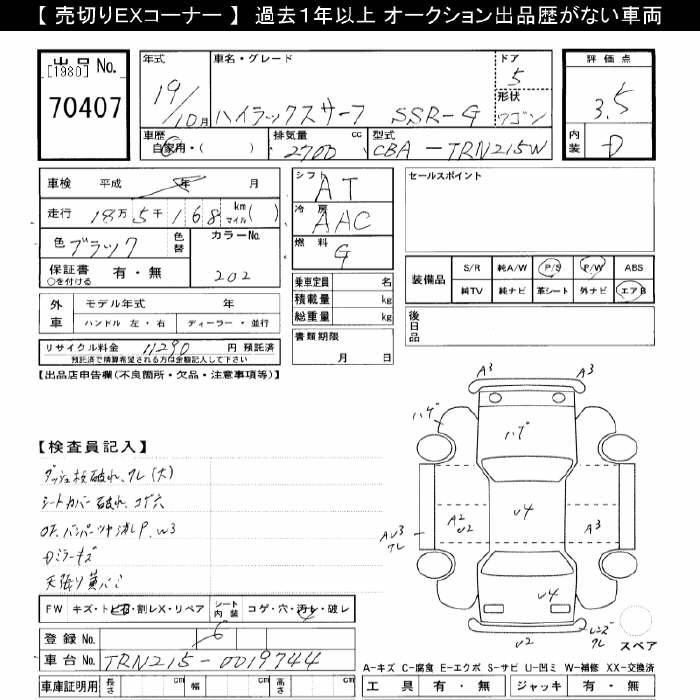 【 売切りEXコーナー 】 過去1年以上 オークション出品歴がない車両
出品 No.
[1980]
70407
年式
19/10月
車名・グレード
ハイラックスサーフ SSR-G
ドア
5
形状
ワゴン
評価点
3.5
車歴
自家用・( )
排気量 cc
2700
型式
CBA-TRN215W
内装
D
車検 平成 年 月
走行 18万5千168 km マイル( )
色 ブラック
色替
カラーNo.
202
保証書 有・無
○を付ける
シフト
AT
冷房
AAC
燃料
G
セールスポイント
装備品
S/R 純A/W P/S P/W ABS
純TV 純ナビ 革シート 外ナビ エアB
乗車定員 名
積載量 kg
総重量 kg
外車
モデル年式 年
ハンドル 左・右 ディーラー・並行
後日品
書類期限
月 日
リサイクル料金 11290 円 預託済
預託済で精算希望される方は金額記入して下さい
【出品店申告欄(不良箇所・欠品・注意事項等)】
A3 A3
ハゲ
ハゲ
【検査員記入】
ダッシュ板破れ、ワレ(大)
シートカバー破れ、コゲ穴
W3
Dミラーキズ
天張り黄バミ
A2
U2
U4
A3
ワレ
U4
U2
レンズワレ
スペア
FW キズ・トビ石・割レX・リペア
シート内装
コゲ・穴・汚レ・破レ
登録 No.
車台 No. TRN215-0019744
車庫証明用 長さ cm 幅 cm 高さ cm
A-キズ C-腐食 E-エクボ S-サビ U-凹ミ W-補修 XX-交換済
工具 有・無 ジャッキ 有・無